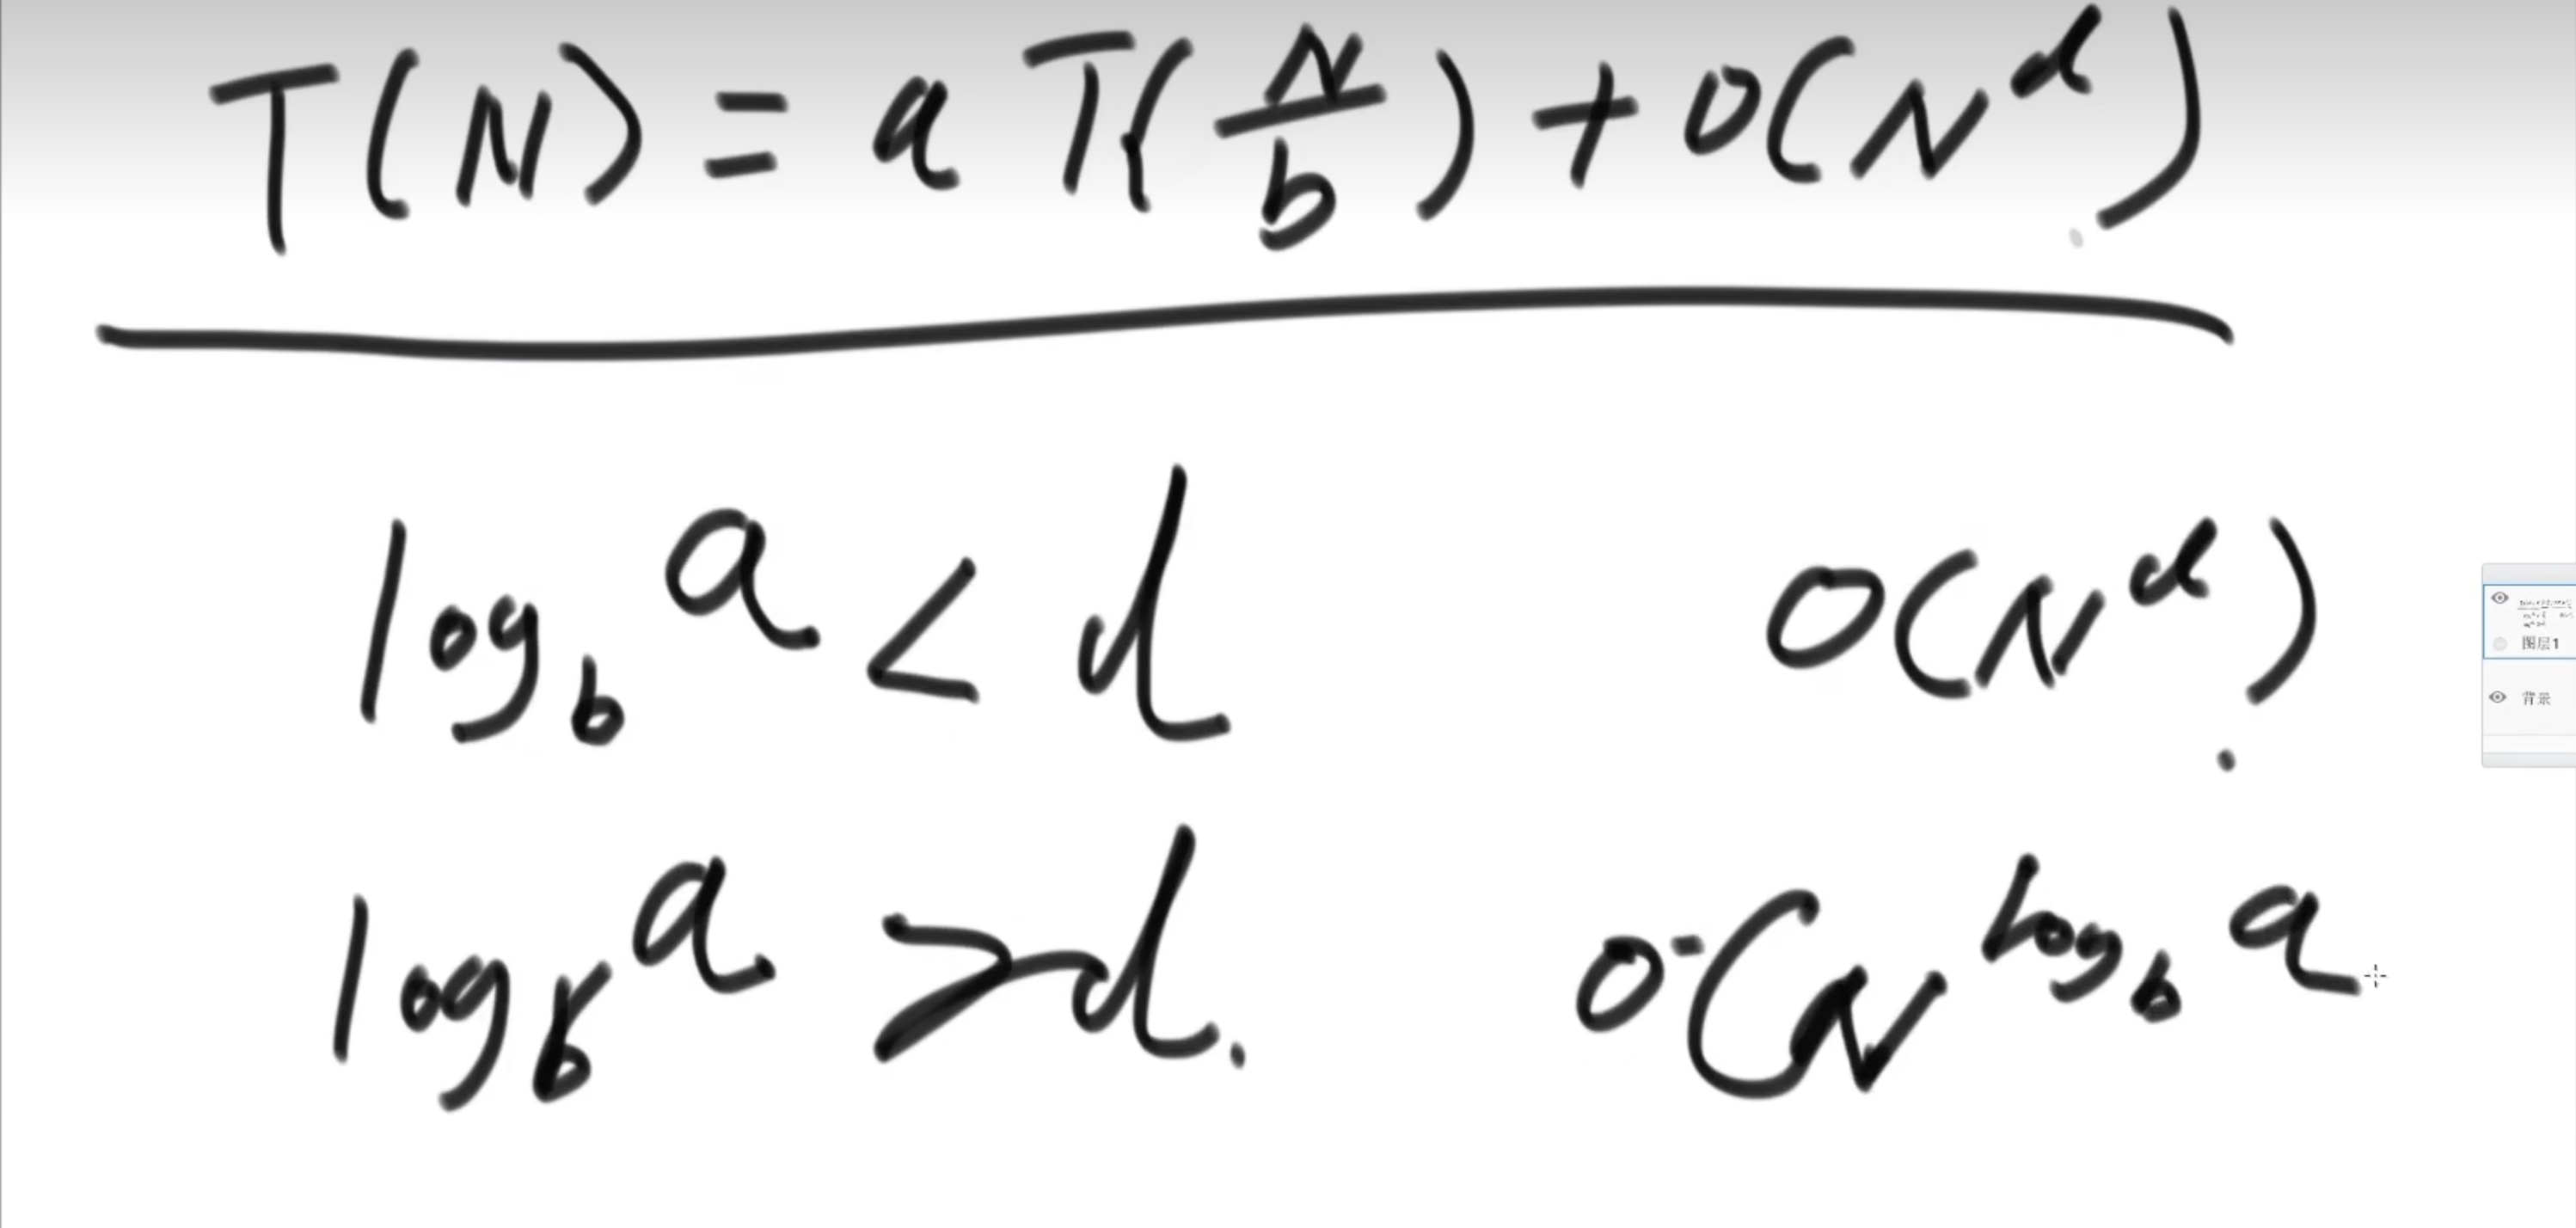 T(N) = a T(N/b) + O(N^d)
log_b a < d    O(N^d)
log_b a > d.    O(N^log_b a
图层1
背景